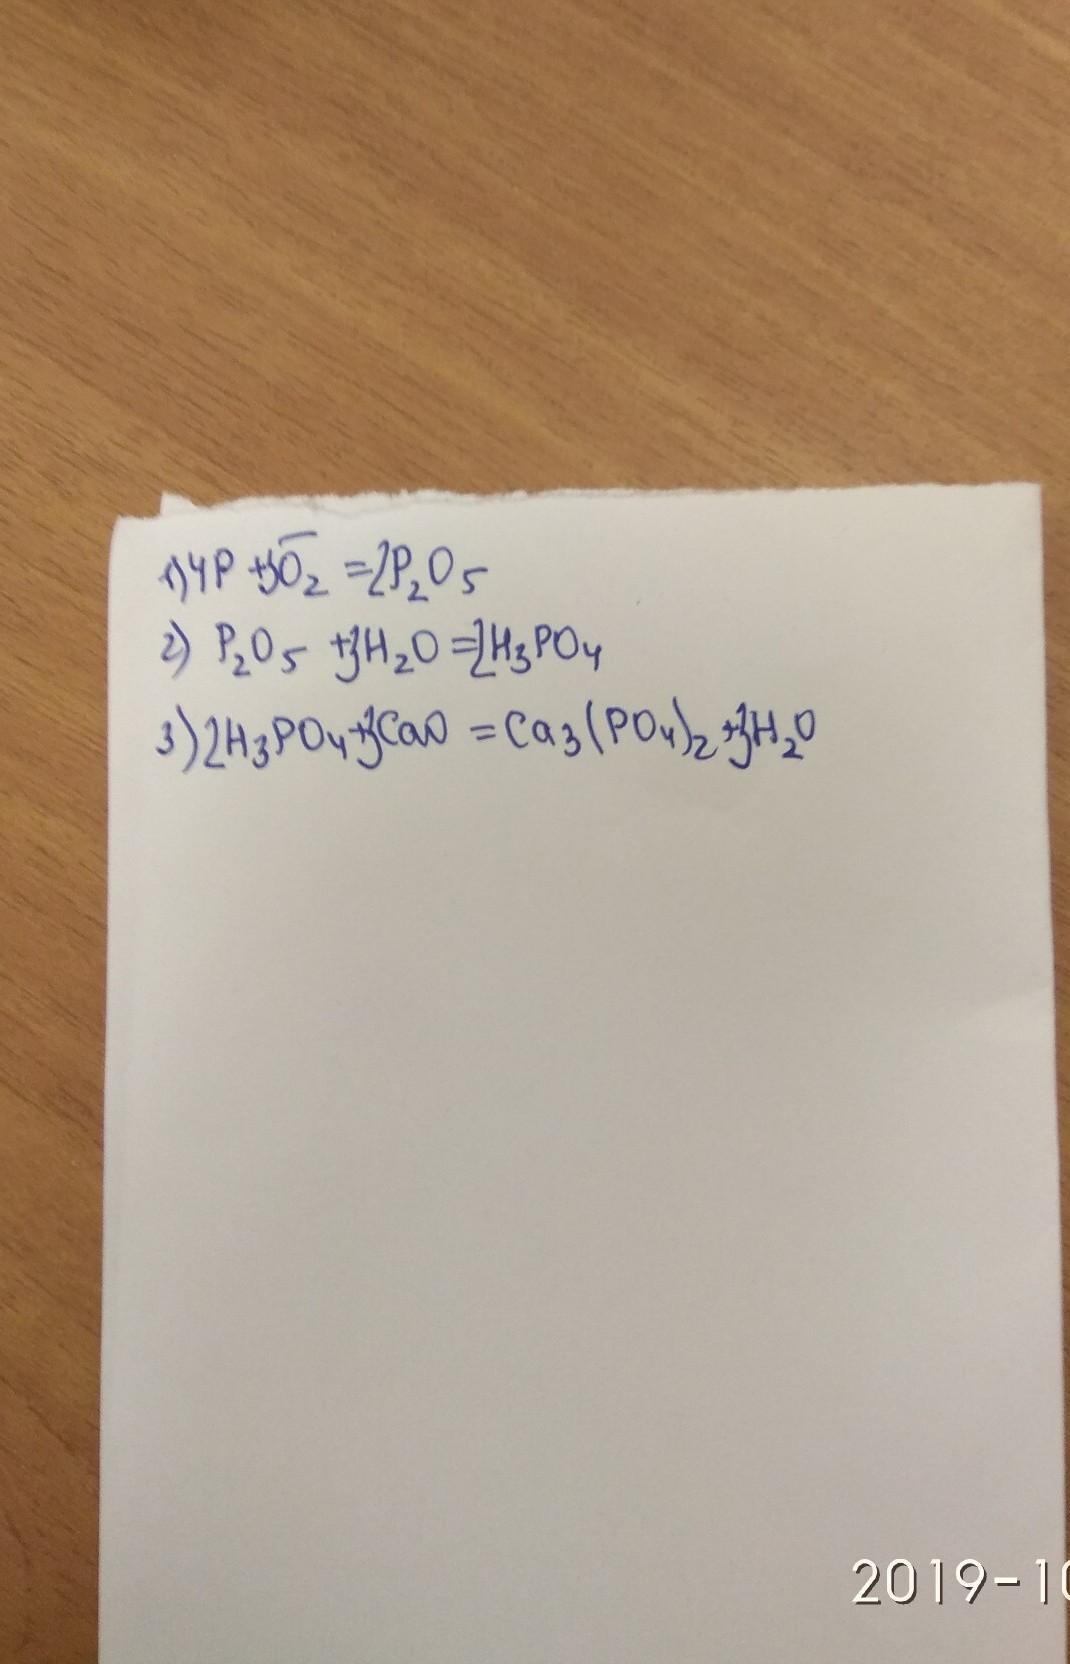 1) 4P + 5O2 = 2P2O5
2) P2O5 + 3H2O = 2H3PO4
3) 2H3PO4 + 3CaO = Ca3(PO4)2 + 3H2O
2019-10